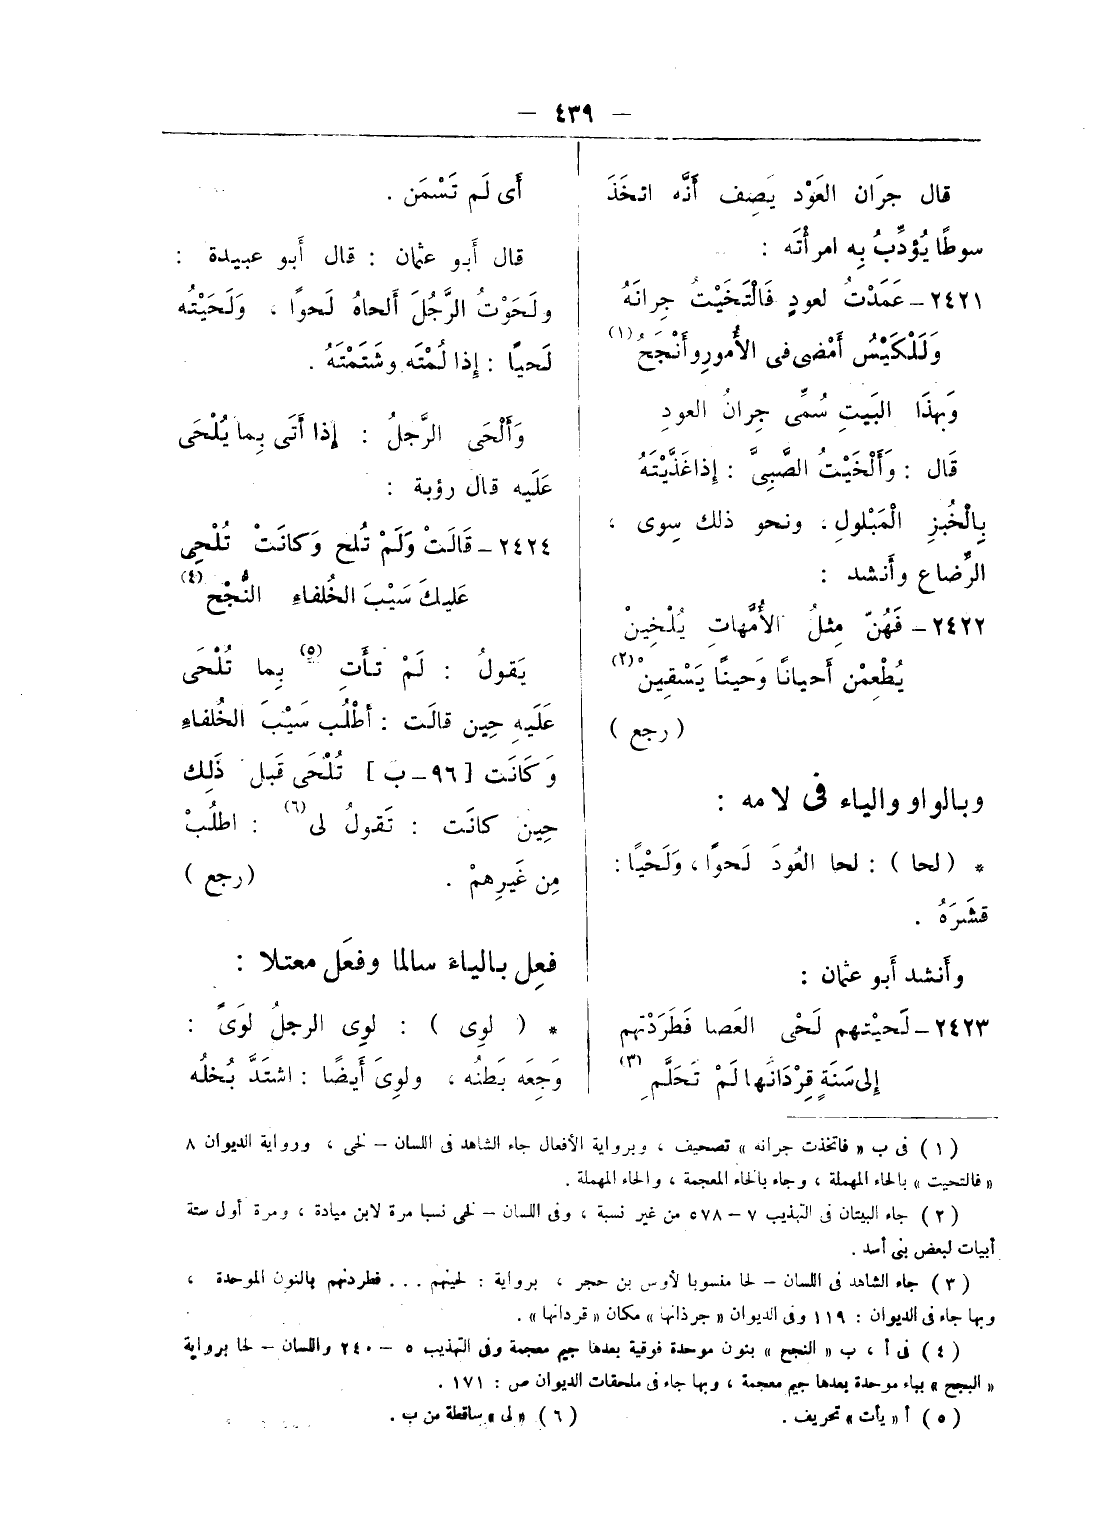 — ٤٣٩ —
قال جِرَان العَوْد يَصِف أَنَّه اتخَذَ
سوطًا يُؤدِّبُ بِه امرأَتَه :
٢٤٢١ – عَمَدْتُ لعودٍ فَالْتَخَيْتُ جِرانَهُ
وَلَلْكَيْسُ أَمْضى فى الأُمورِ وأَنْجَحُ (١)
وَبهذَا البَيتِ سُمِّى جِرانُ العودِ
قَال : وَأَلْخَيْتُ الصَّبِىَّ : إذا غَذَّيْتَهُ
بِالْخُبزِ الْمَبْلولِ ، ونحو ذلك سِوى ،
الرَّضاع وأَنشد :
٢٤٢٢ – فَهُنّ مِثلُ الأُمَّهاتِ يُلْخِينْ
يُطْعِمْن أَحيانًا وَحينًا يَسْقِينْ (٢)
( رجع )
وبالواو والياء فى لامه :
* ( لحا ) : لحا العُودَ لَحوًا ، وَلَحْيًا :
قشَرَهُ .
وأَنشد أَبو عثمان :
٢٤٢٣ – لَحيْتهم لَحْى العَصا فَطَرَدْتهم
إلى سَنَةٍ قِرْدَانُها لَمْ تَحَلَّمِ (٣)
أَى لَم تَسْمَن .
قال أَبو عثمان : قال أَبو عبيدة :
ولَحَوْتُ الرَّجُلَ أَلحاهُ لَحوًا ، وَلَحَيْتُه
لَحيًا : إذا لُمْتَه وشَتَمْتَهُ .
وَأَلْحَى الرَّجلُ : إذا أَتَى بِما يُلْحَى
عَلَيه قال رؤبة :
٢٤٢٤ – قَالَتْ وَلَمْ تُلحِ وَكانَتْ تُلْحِى
عَليكَ سَيْبَ الخُلفاءِ النُّجْحِ (٤)
يَقولُ : لَمْ تَأتِ (٥) بِما تُلْحَى
عَلَيهِ حِين قالَت : أطْلُب سَيْبَ الخُلفاءِ
وَكَانَت [ ٩٦ – ب ] تُلْحَى قَبل ذَلِك
حِين كانَت : تَقولُ لى (٦) : اطلُبْ
مِن غَيرِهمْ . ( رجع )
فعِل بالياء سالما وفعَل معتلا :
* ( لوِى ) : لوِى الرجلُ لَوَىً :
وَجِعَه بَطنُه ، ولوِىَ أَيضًا : اشتَدَّ بُخلُه
( ١ ) فى ب « فاتخذت جرانه » تصحيف ، وبرواية الأفعال جاء الشاهد فى اللسان – لخى ، ورواية الديوان ٨
« فالتحيت » بالحاء المهملة ، وجاء بالخاء المعجمة ، والحاء المهملة .
( ٢ ) جاء البيتان فى التهذيب ٧ – ٥٧٨ من غير نسبة ، وفى اللسان – لخى نسبا مرة لابن ميادة ، ومرة أول ستة
أبيات لبعض بنى أسد .
( ٣ ) جاء الشاهد فى اللسان – لحا منسوبا لأوس بن حجر ، برواية : لحينهم . . . فطردنهم بالنون الموحدة ،
وبها جاء فى الديوان : ١١٩ وفى الديوان « جرذانها » مكان « قردانها » .
( ٤ ) فى أ ، ب « النجح » بنون موحدة فوقية بعدها جيم معجمة وفى التهذيب ٥ – ٢٤٠ واللسان – لحا برواية
« البجح » بباء موحدة بعدها جيم معجمة ، وبها جاء فى ملحقات الديوان ص : ١٧١ .
( ٥ ) أ « يأت » تحريف . ( ٦ ) « لى » ساقطة من ب .